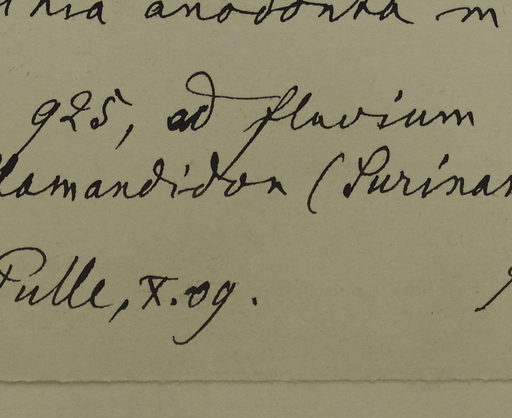 anodonta m
925, ad fluvium
lamandidon (Surinam
Pulle, X.09.